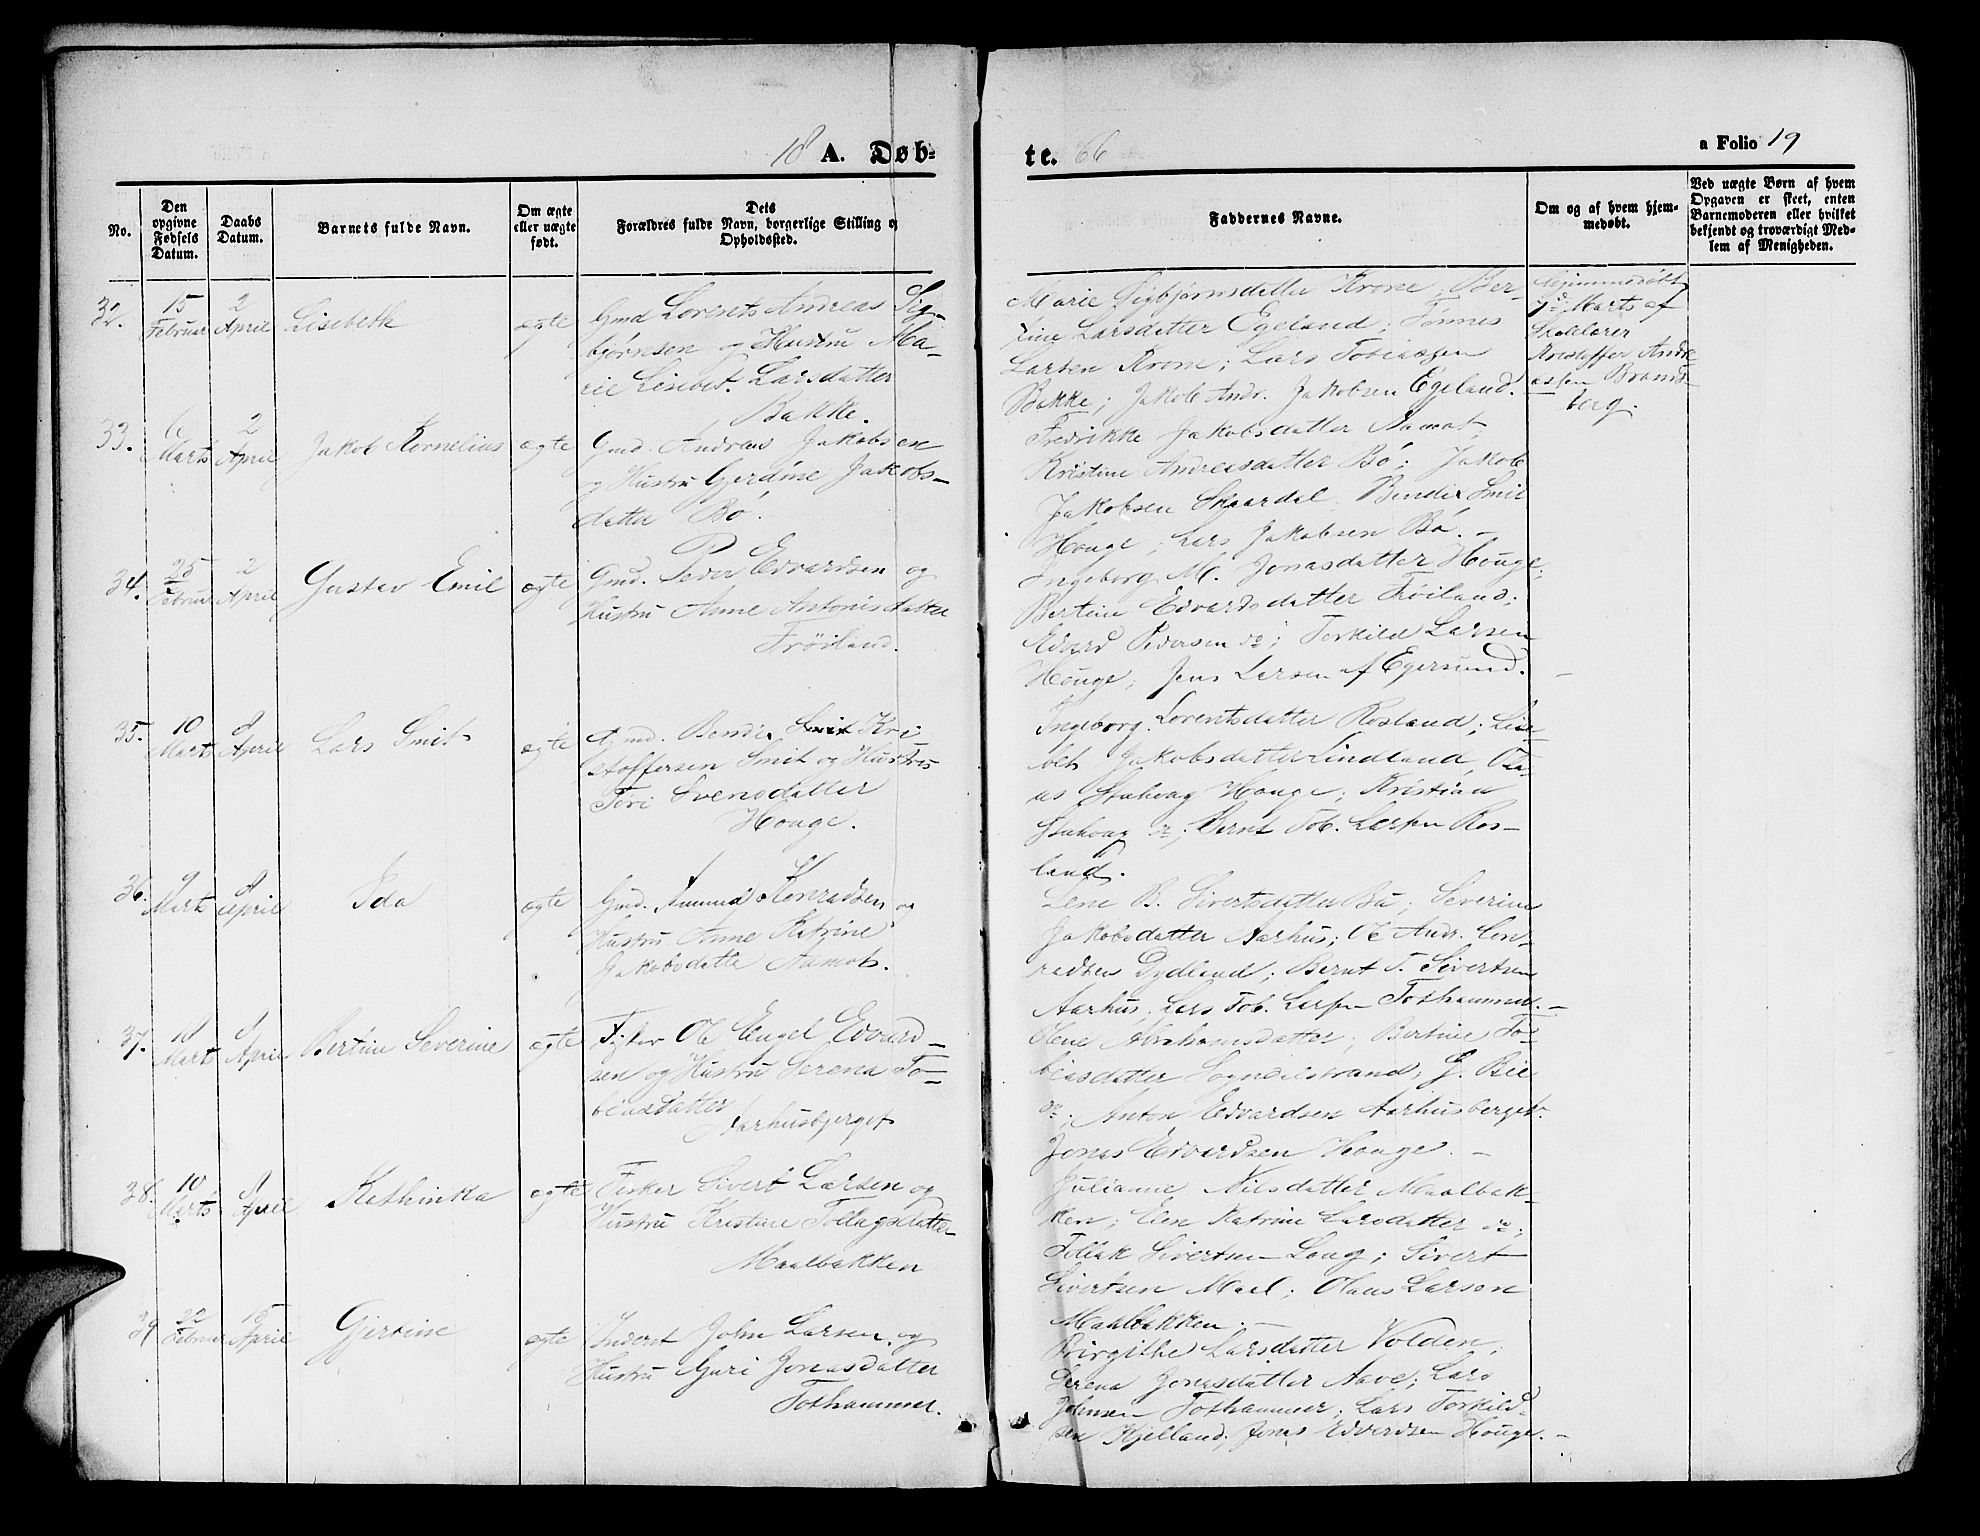 18 A. Døb-
te. 66
a Folio 19
No.
Den
opgivne
Fødsels
Datum.
Daabs
Datum.
Barnets fulde Navn.
Om ægte
eller uægte
født.
Dets
Forældres fulde Navn, borgerlige Stilling o
Opholdssted.
Faddernes Navne.
Om og af hvem hjem-
medøbt.
Ved uægte Børn af hvem
Opgaven er skeet, enten
Barnemoderen eller hvilket
bekjendt og troværdigt Med-
lem af Menigheden.
32.
15
Februar
2
April
Lisebeth
ægte
Gmd Lorents Andreas Sig-
bjørnsen og Hustru Ma-
rie Lisebet. Larsdatter
Bakke.
Marie Sigbjørnsdatter Krone; Ber-
tine Larsdatter Egeland; Tønnes
Larsen Krone; Lars Tobiassen
Bakke; Jakob Andr. Jakobsen Egeland.
Hjemmedøbt
Marts af
Skolelærer
Kristoffer Andre-
assen Brands-
berg.
33.
6
Marts
2
April
Jakob Kornelius
ægte
Gmd. Andreas Jakobsen
og Hustru Gerdine Jakobs-
datter Bö.
Fredrikke Jakobsdatter Aamot,
Kristine Andreasdatter Bö; Jakob
Jakobsen Skaardal; Bendix Smit
Houge; Lars Jakobsen Bö. -
34.
25
Februar
2
April
Gustav Emil
ægte
Gmd. Peder Edvardsen og
Hustru Anne Antonisdatter
Frøiland.
Ingeborg M. Jonasdatter Houge;
Bertine Edvardsdatter Frøiland;
Edvard Pedersen do; Torkild Larsen
Houge; Jens Larsen af Egersund. -
35.
10
Marts
8
April
Lars Smit
ægte
Gmd. Bendix Smit Kri
stoffersen Smit og Hustru
Tori Svensdatter
Houge.
Ingeborg Lorentsdatter Rosland; Lise-
bet Jakobsdatter Lindland,
Stuhoug Houge; Kristian
Stuhoug do; Bernt Tob. Larsen Ros-
land.
36.
9
Marts
8
April
Ida
ægte
Gmd. Amund Konradsen og
Hustru Anne Katrine
Jakobsdatte Aamot.
Lene B. Sivertsdatter Bu; Severine
Jakobsdatter Aarhus; Ol Andr. Con-
radsen Dydland; Bernt T. Sivertsen
Aarhus. Lars Tob. Larsen Tothammer. -
37.
18
Mart
8
April
Bertine Severine
ægte
Fisker Ole Engel Edvard-
sen og Hustru Serena To-
biasdatter
Aarhusbjerget
Olene Abrahamsdatter; Bertine To-
biasdatter Sogndalstrand; G. Bie
do; Anton Edvardsen Aarhusberget.
Jonas Edvardsen Houge. -
38.
10
Marts
8
April
Kathinka
ægte
Fisker Sivert Larsen og
Hustru Kristine Tollagsdatter
Maalbakken
Julianne Nilsdatter Maalbak-
ken; Elen Katrine Larsdatter do;
Tollak Sivertsen Loug; Sivert
Sivertsen Mael; Olaus Larsen
Maalbakken. -
39
22
Februar
15
April
Gjertine
ægte
Inderst John Larsen og
Hustru Guri Jonasdatter
Tothammer.
Birgithe Larsdatter Volden;
Serena Jonasdatter Aave; Lars
Johnsen Tothammer; Lars Torkild-
sen Kjelland; Jonas Edvardsen Houge. -